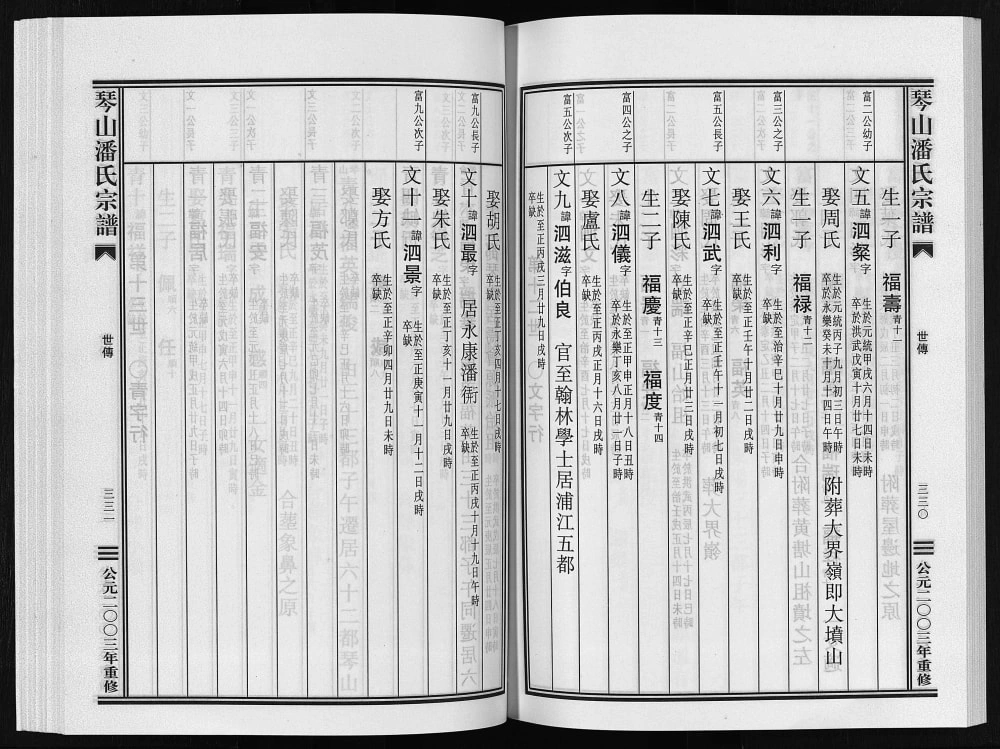 琴山潘氏宗譜
世傳
三三〇
公元二〇〇三年重修
生一子 福壽青十一
富二公幼子
文五諱泗粲字 生於元統甲戌六月十四日未時 卒於洪武戊寅十月廿七日未時
娶周氏 生於元統丙子九月初三日午時 卒於永樂癸未十月初四日午時 附葬大界嶺即大墳山
生一子 福禄青十二
富三公之子
文六諱泗利字 生於至治辛巳十月廿九日申時 卒缺
娶王氏 生於至正壬午十月廿二日戌時 卒缺
富五公長子
文七諱泗武字 生於至正壬午十一月初七日戌時 卒缺
娶陳氏 生於至正辛巳正月廿三日戌時 卒缺
生二子 福慶青十三 福度青十四
富四公之子
文八諱泗儀字 生於至正甲申正月十八日丑時 卒於永樂丁亥八月廿一日子時
娶盧氏 生於至正丙戌正月十六日戌時 卒缺
富五公次子
文九諱泗滋字伯良 官至翰林學士居浦江五都
生於至正丙戌三月廿九日戌時 卒缺
娶胡氏 生於至正丁亥四月十七日戌時 卒缺
富九公長子
文十諱泗最字 居永康潘衕 生於至正丙戌十月十九日午時 卒缺
娶朱氏 生於至正丁亥十一月廿九日戌時 卒缺
富九公次子
文十諱泗景字 生於至正庚寅十一月十二日戌時 卒缺
娶方氏 生於至正辛卯四月廿九日未時 卒缺
琴山潘氏宗譜
世傳
三三一
公元二〇〇三年重修